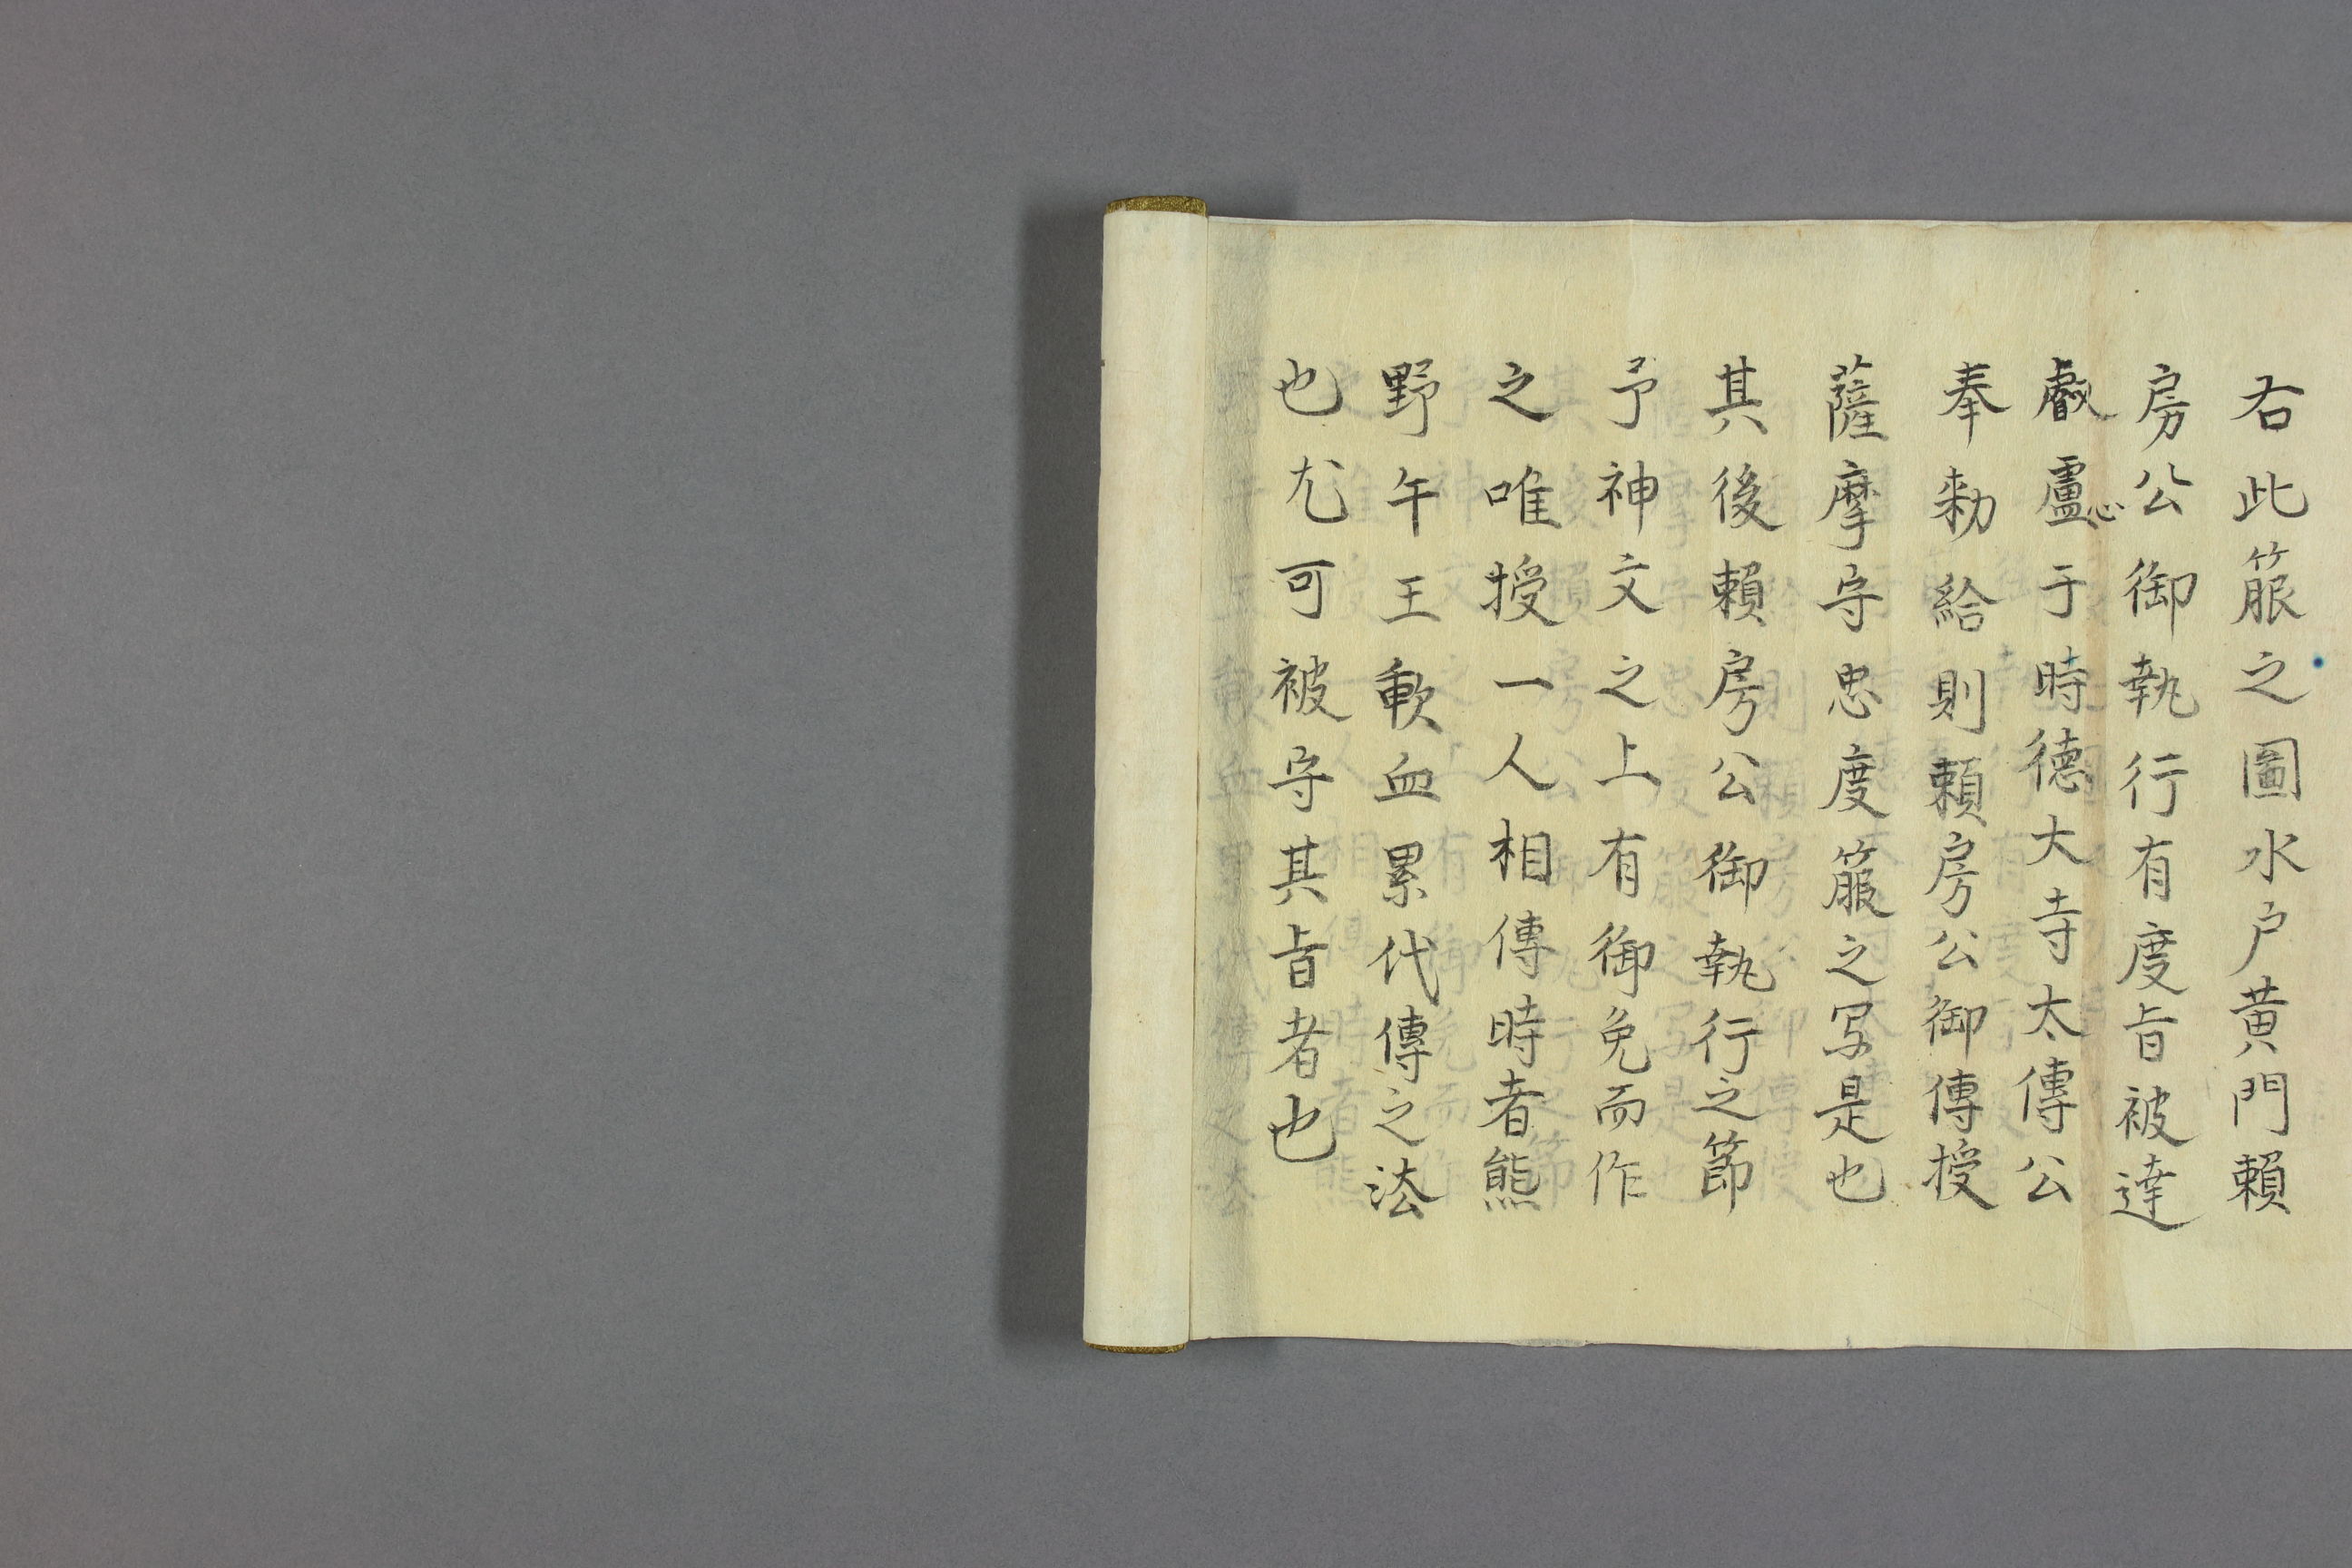 右此箙之圖水户黄門賴
房公御執行有度旨被達
叡盧心于時徳大寺太傳公
奉勅給則賴房公御傳授
薩摩守忠度箙之写是也
其後賴房公御執行之節
予神文之上有御免而作
之唯授一人相傳時者熊
野午王歃血累代傳之法
也尤可被守其旨者也